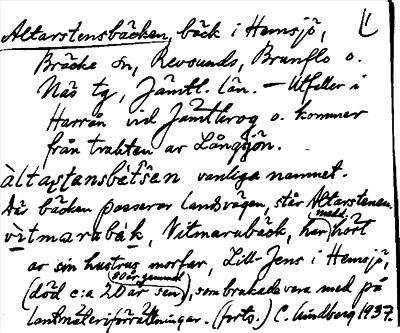 Altarstensbäcken, bäck i Hemsjö,
Bräcke sn, Revsunds, Brunflo o.
Näs tg, Jämtl. län. – Utfaller i
Harrån vid Jämtkrog o. kommer
från trakten av Långsjön.
àltaʂʈensbɛ́tsen vanliga namnet.
Där bäcken passerar landsvägen, står Altarstenen.
vìtmarabäk, Vitmarabäck, har hört
med.
av sin hustrus morfar, Lill-Jens i Hemsjö,
80 år gammal
(död c:a 20 år sen), som brukade vara med på
lantmäteriförrättningar. (forts.) C. Lindberg 1937.